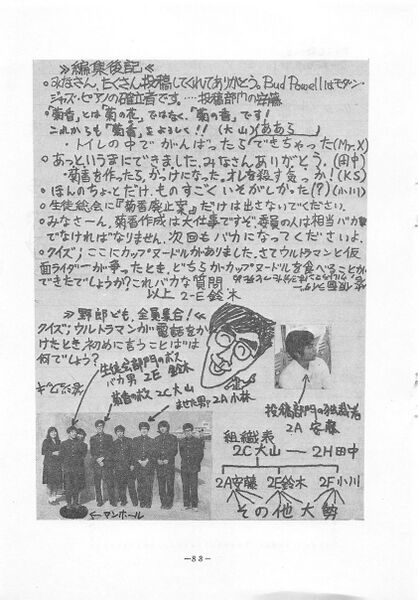 ≫編集後記≪
○みなさん、たくさん投稿してくれてありがとう。Bud Powellはモダン・
ジャズ・ピアノの確立者です。…投稿部門の安藤
○「菊香」とは「菊の花」ではなく、「菊の香」です!
これからも「菊香」をよろしく!!(大山)(ああら)
・トイレの中でがんばったらできちゃった(Mr.X)
○あっというまにできました。みなさんありがとう。(田中)
・菊香を作ったら、かっけになった。オレを殺す気っか!(K.S)
○ほんのちょっとだけ、ものすごくいそがしかった(?)(小川)
○生徒総会に『菊香廃止案』だけは出さないでください。
○みなさーん。菊香作成は大仕事ですぞ。委員の人は相当バカ
でなければなりません。次回もバカになってくださいよ。
○クイズ;ここにカップヌードルがありました。さてウルトラマンと仮
面ライダーが争ったとき、どちらがカップヌードルを食べることが
できたでしょうか?これバカな質問
以上 2-E 鈴木
≫野郎ども、全員集合!≪
クイズ;ウルトラマンが電話をか
けたとき、初めに言うことばは
何でしょう?
生徒会部門のボス
バカ男 2E 鈴木
菊香のボス 2C 大山
ませた男? 2A 小林
投稿部門の独裁者
2A 安藤
←マンホール
組織表
2C大山 ── 2H田中
2A安藤 2E鈴木 2F小川
その他大勢
—88—